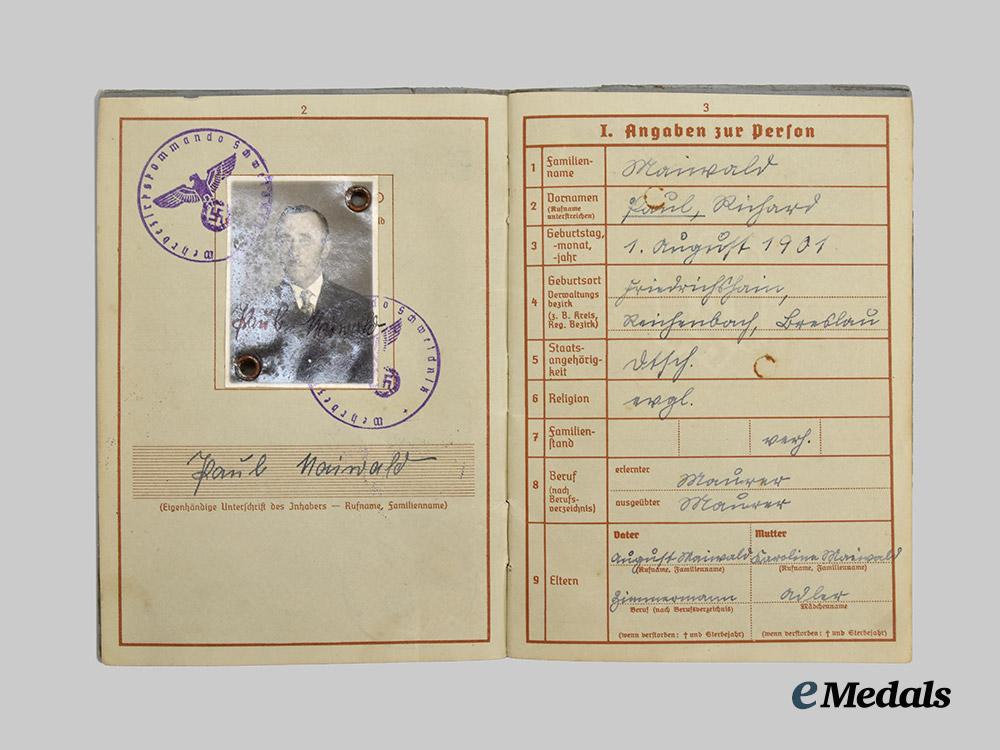 2
Wehrbezirkskommando Schweidnitz
Paul Maiwald
Wehrbezirkskommando Schweidnitz
Paul Maiwald
(Eigenhändige Unterschrift des Inhabers — Rufname, Familienname)
3
I. Angaben zur Person
1 Familien-
name
Maiwald
2 Vornamen
(Rufname
unterstreichen)
Paul, Richard
3 Geburtstag,
-monat,
-jahr
1. August 1901
4 Geburtsort
Verwaltungs
bezirk
(z. B. Kreis,
Reg. Bezirk)
Friedrichshain,
Reichenbach, Breslau
5 Staats-
angehörig-
keit
Dtsch.
6 Religion
evgl.
7 Familien-
stand
verh.
8 Beruf
(nach
Berufs-
verzeichnis)
erlernter
Maurer
ausgeübter
Maurer
9 Eltern
Vater
August Maiwald
(Rufname, Familienname)
Zimmermann
Beruf (nach Berufsverzeichnis)
(wenn verstorben: † und Sterbejahr)
Mutter
Karoline Maiwald
(Rufname, Familienname)
Adler
Mädchenname
(wenn verstorben: † und Sterbejahr)
eMedals